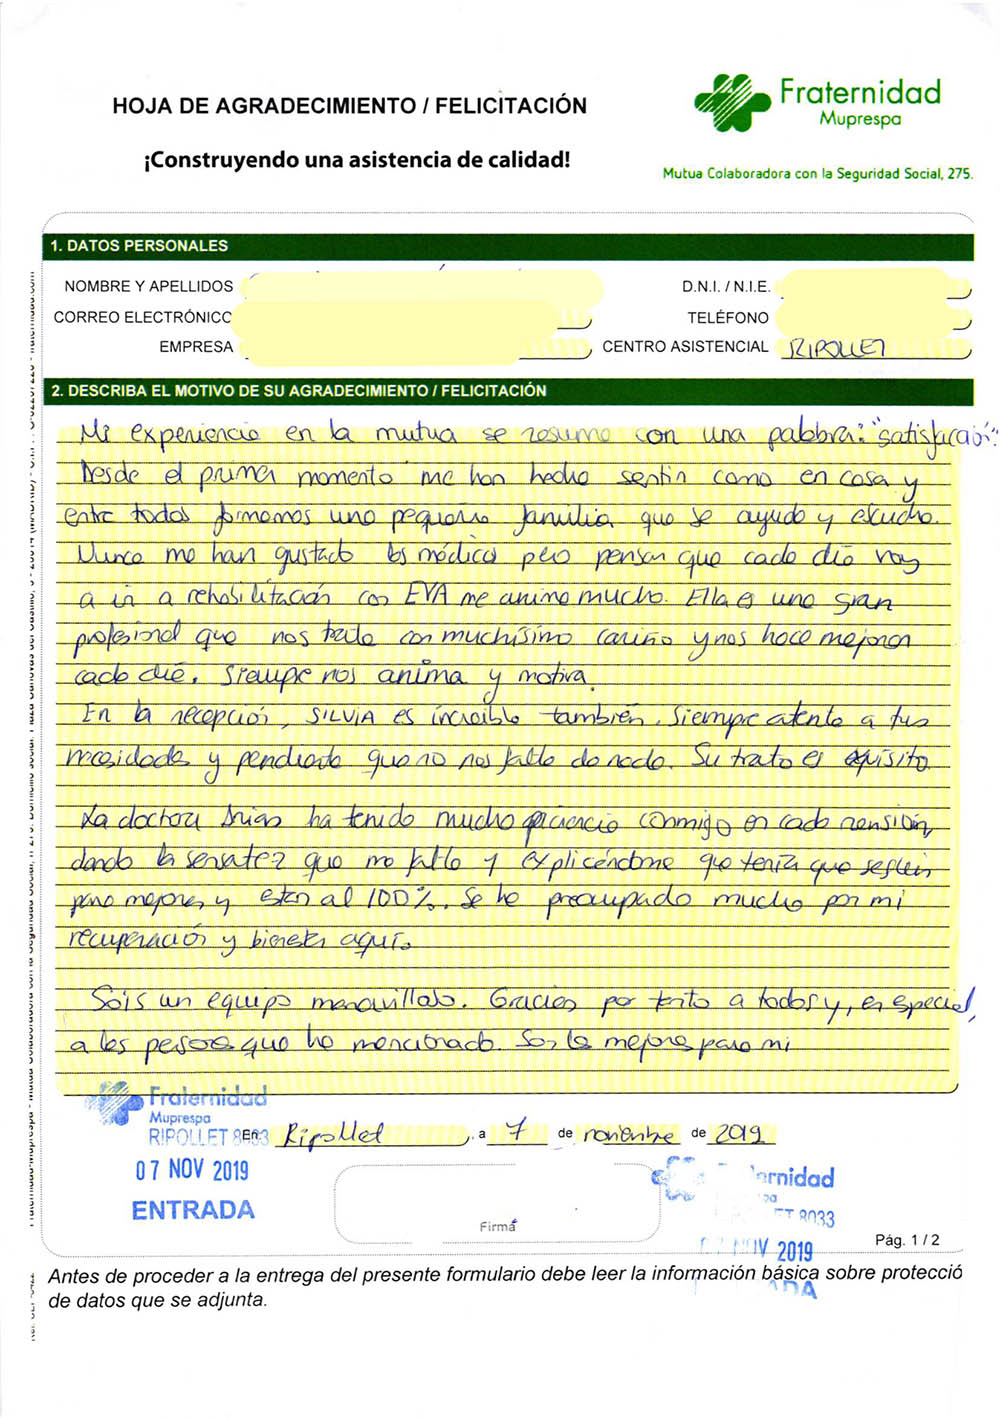 HOJA DE AGRADECIMIENTO / FELICITACIÓN
¡Construyendo una asistencia de calidad!
Fraternidad
Muprespa
Mutua Colaboradora con la Seguridad Social, 275.
1. DATOS PERSONALES
NOMBRE Y APELLIDOS
D.N.I. / N.I.E.
CORREO ELECTRÓNICO
TELÉFONO
EMPRESA
CENTRO ASISTENCIAL RIPOLLET
2. DESCRIBA EL MOTIVO DE SU AGRADECIMIENTO / FELICITACIÓN
Mi experiencia en la mutua se resume con una palabra: "satisfacció".
Desde el primer momento me han hecho sentir como en casa y
entre todos formamos una pequeña familia que se ayuda y escucha.
Nunca me han gustado los médicos pero pensar que cada día voy
a ir a rehabilitación con EVA me anima mucho. Ella es una gran
profesional que nos trata con muchísimo cariño y nos hace mejorar
cada día. Siempre nos anima y motiva.
En la recepción, SILVIA es increíble también. Siempre atenta a tus
necesidades y pendiente que no nos falte de nada. Su trato es exquisito.
La doctora Arias ha tenido mucha paciencia conmigo en cada revisión,
dando la sensatez que me falta y explicándome que tenía que seguir
para mejorar y estar al 100%. Se ha preocupado mucho por mi
recuperación y bienestar aquí.
Sois un equipo maravilloso. Gracias por tanto a todos y, en especial,
a las personas que he mencionado. Son las mejores para mi
Fraternidad
Muprespa
RIPOLLET 8033
En Ripollet, a 7 de noviembre de 2019
07 NOV 2019
ENTRADA
Firma
8033
NOV 2019
Pág. 1 / 2
Antes de proceder a la entrega del presente formulario debe leer la información básica sobre protecció
de datos que se adjunta.